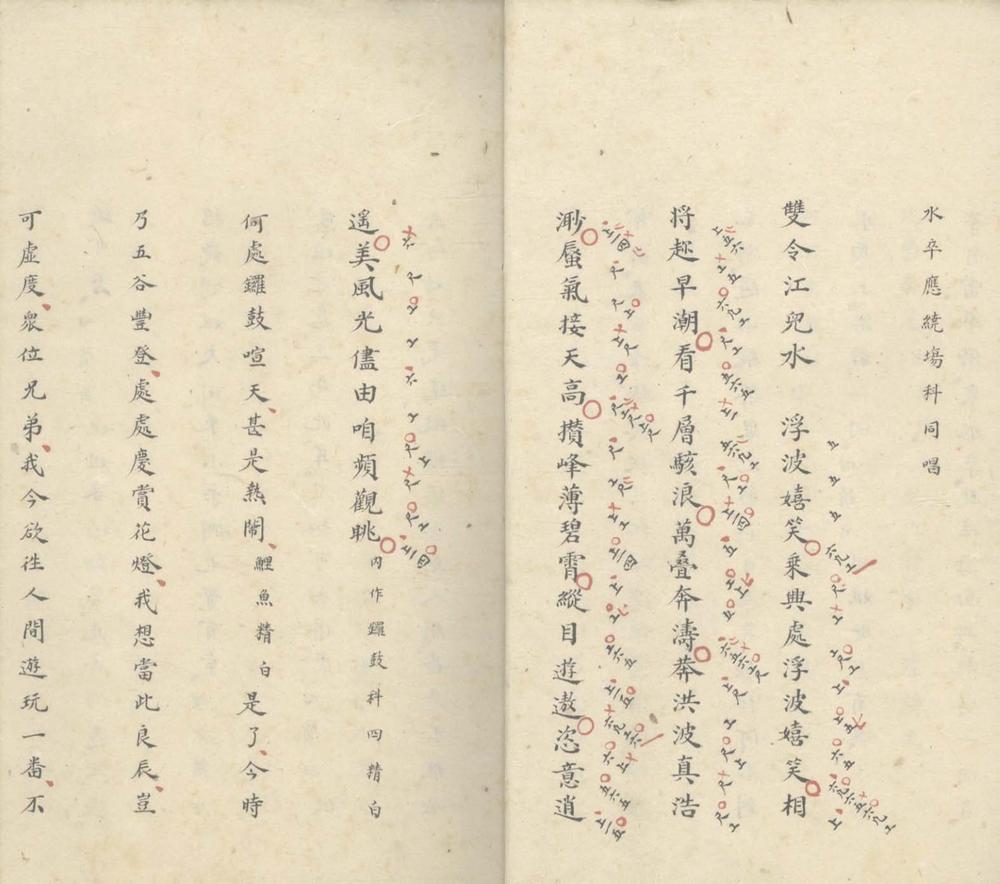 水卒應繞塲科同唱
雙令江兒水　浮波嬉笑乗興處浮波嬉笑相
將趂早潮看千層駭浪萬叠奔濤莽洪波真浩
渺蜃氣接天高攢峰薄碧霄縱目遊遨恣意逍
遥美風光儘由咱頻觀眺内作鑼鼓科四精白
何處鑼鼓喧天甚是熱鬧鯉魚精白是了今時
乃五谷豐登處處慶賞花燈我想當此良辰豈
可虛度衆位兄弟我今欲徃人間遊玩一畨不